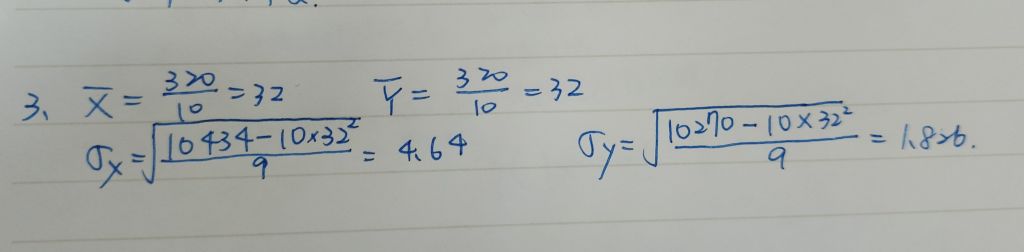 3、 X̄ = 320/10 = 32 Ȳ = 320/10 = 32
σx = √((10434 - 10×32²)/9) = 4.64 σy = √((10270 - 10×32²)/9) = 1.826.